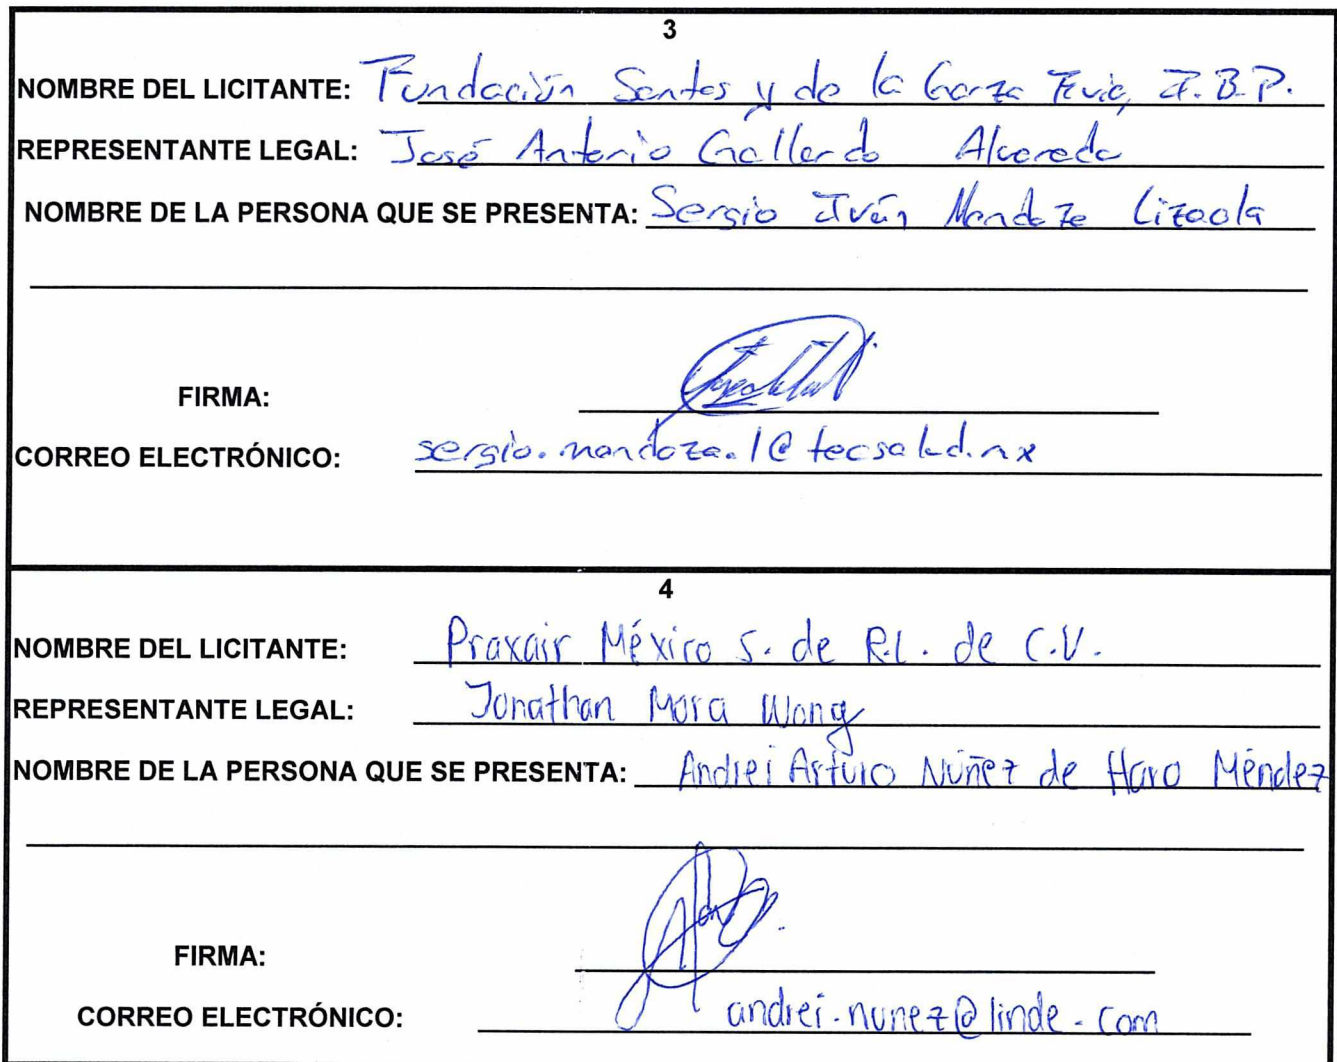 3
NOMBRE DEL LICITANTE: Fundación Santos y de la Garza Evia, I.B.P.
REPRESENTANTE LEGAL: José Antonio Gallardo Alvarado
NOMBRE DE LA PERSONA QUE SE PRESENTA: Sergio Iván Mendoza Lizaola
FIRMA:
CORREO ELECTRÓNICO: sergio.mendoza.l@tecsalud.mx
4
NOMBRE DEL LICITANTE: Praxair México S. de R.L. de C.V.
REPRESENTANTE LEGAL: Jonathan Mora Wong
NOMBRE DE LA PERSONA QUE SE PRESENTA: Andrei Arturo Núñez de Haro Méndez
FIRMA:
CORREO ELECTRÓNICO: andrei.nunez@linde.com